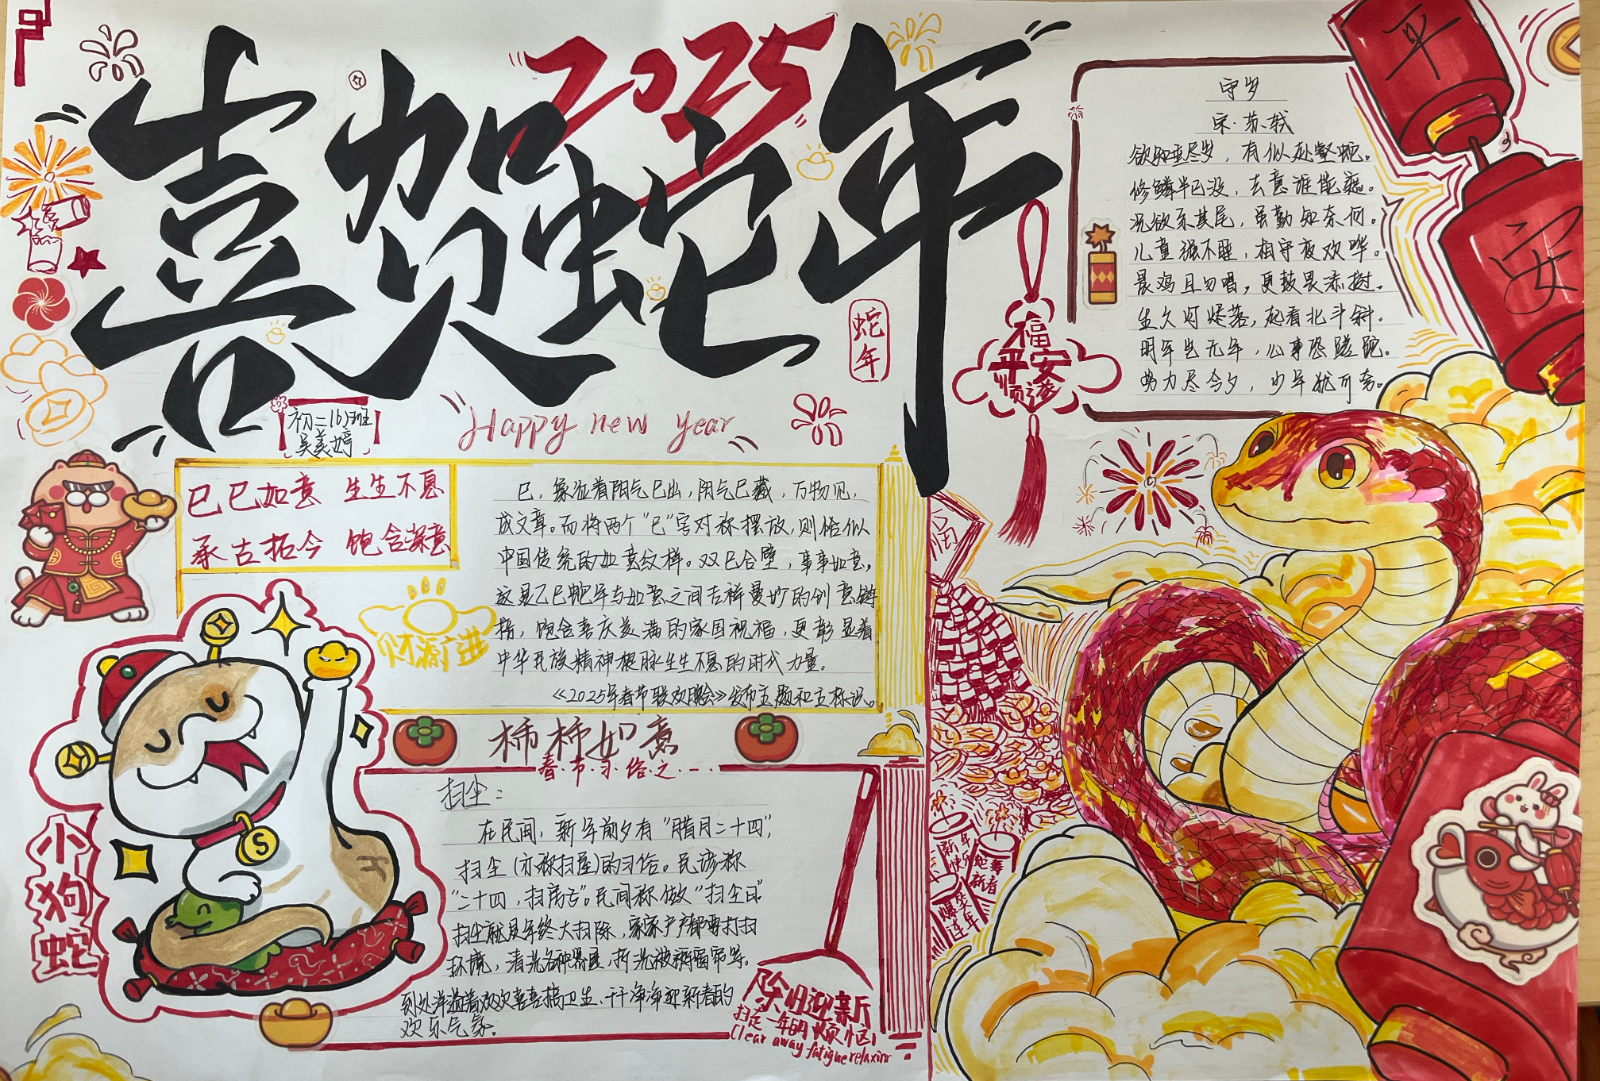 2025
喜贺蛇年
蛇年
Happy new year
初二16班
吴美婷
平安
福
平安
顺遂
守岁
宋·苏轼
欲知垂尽岁，有似赴壑蛇。
修鳞半已没，去意谁能遮。
况欲系其尾，虽勤知奈何。
儿童强不睡，相守夜欢哗。
晨鸡且勿唱，更鼓畏添挝。
坐久灯烬落，起看北斗斜。
明年岂无年，心事恐蹉跎。
努力尽今夕，少年犹可夸。
巳巳如意 生生不息
承古拓今 饱含深意
巳，象征着阳气已出，阴气已藏，万物见，
成文章。而将两个“巳”字对称摆放，则恰似
中国传统的如意纹样。双巳合璧，事事如意，
这是乙巳蛇年与如意之间吉祥曼妙的创意链
接，饱含喜庆美满的家国祝福，更彰显着
中华民族精神根脉生生不息的时代力量。
《2025年春节联欢晚会》发布主题和主标识。
财源广进
柿柿如意
春·节·习·俗·之·一
扫尘：
在民间，新年前夕有“腊月二十四”，
扫尘（亦称扫屋）的习俗。民谚称
“二十四，扫房子”。民间称做“扫尘日”
扫尘就是年终大扫除，家家户户都要打扫
环境，清洗各种器具，拆洗被褥窗帘等。
到处洋溢着欢欢喜喜搞卫生、干干净净迎新春的
欢乐气氛。
除旧迎新
扫走一年的烦恼
Clear away fatigue relaxinr
小狗蛇
福
新年快乐
蛇舞新春
爆笑连年